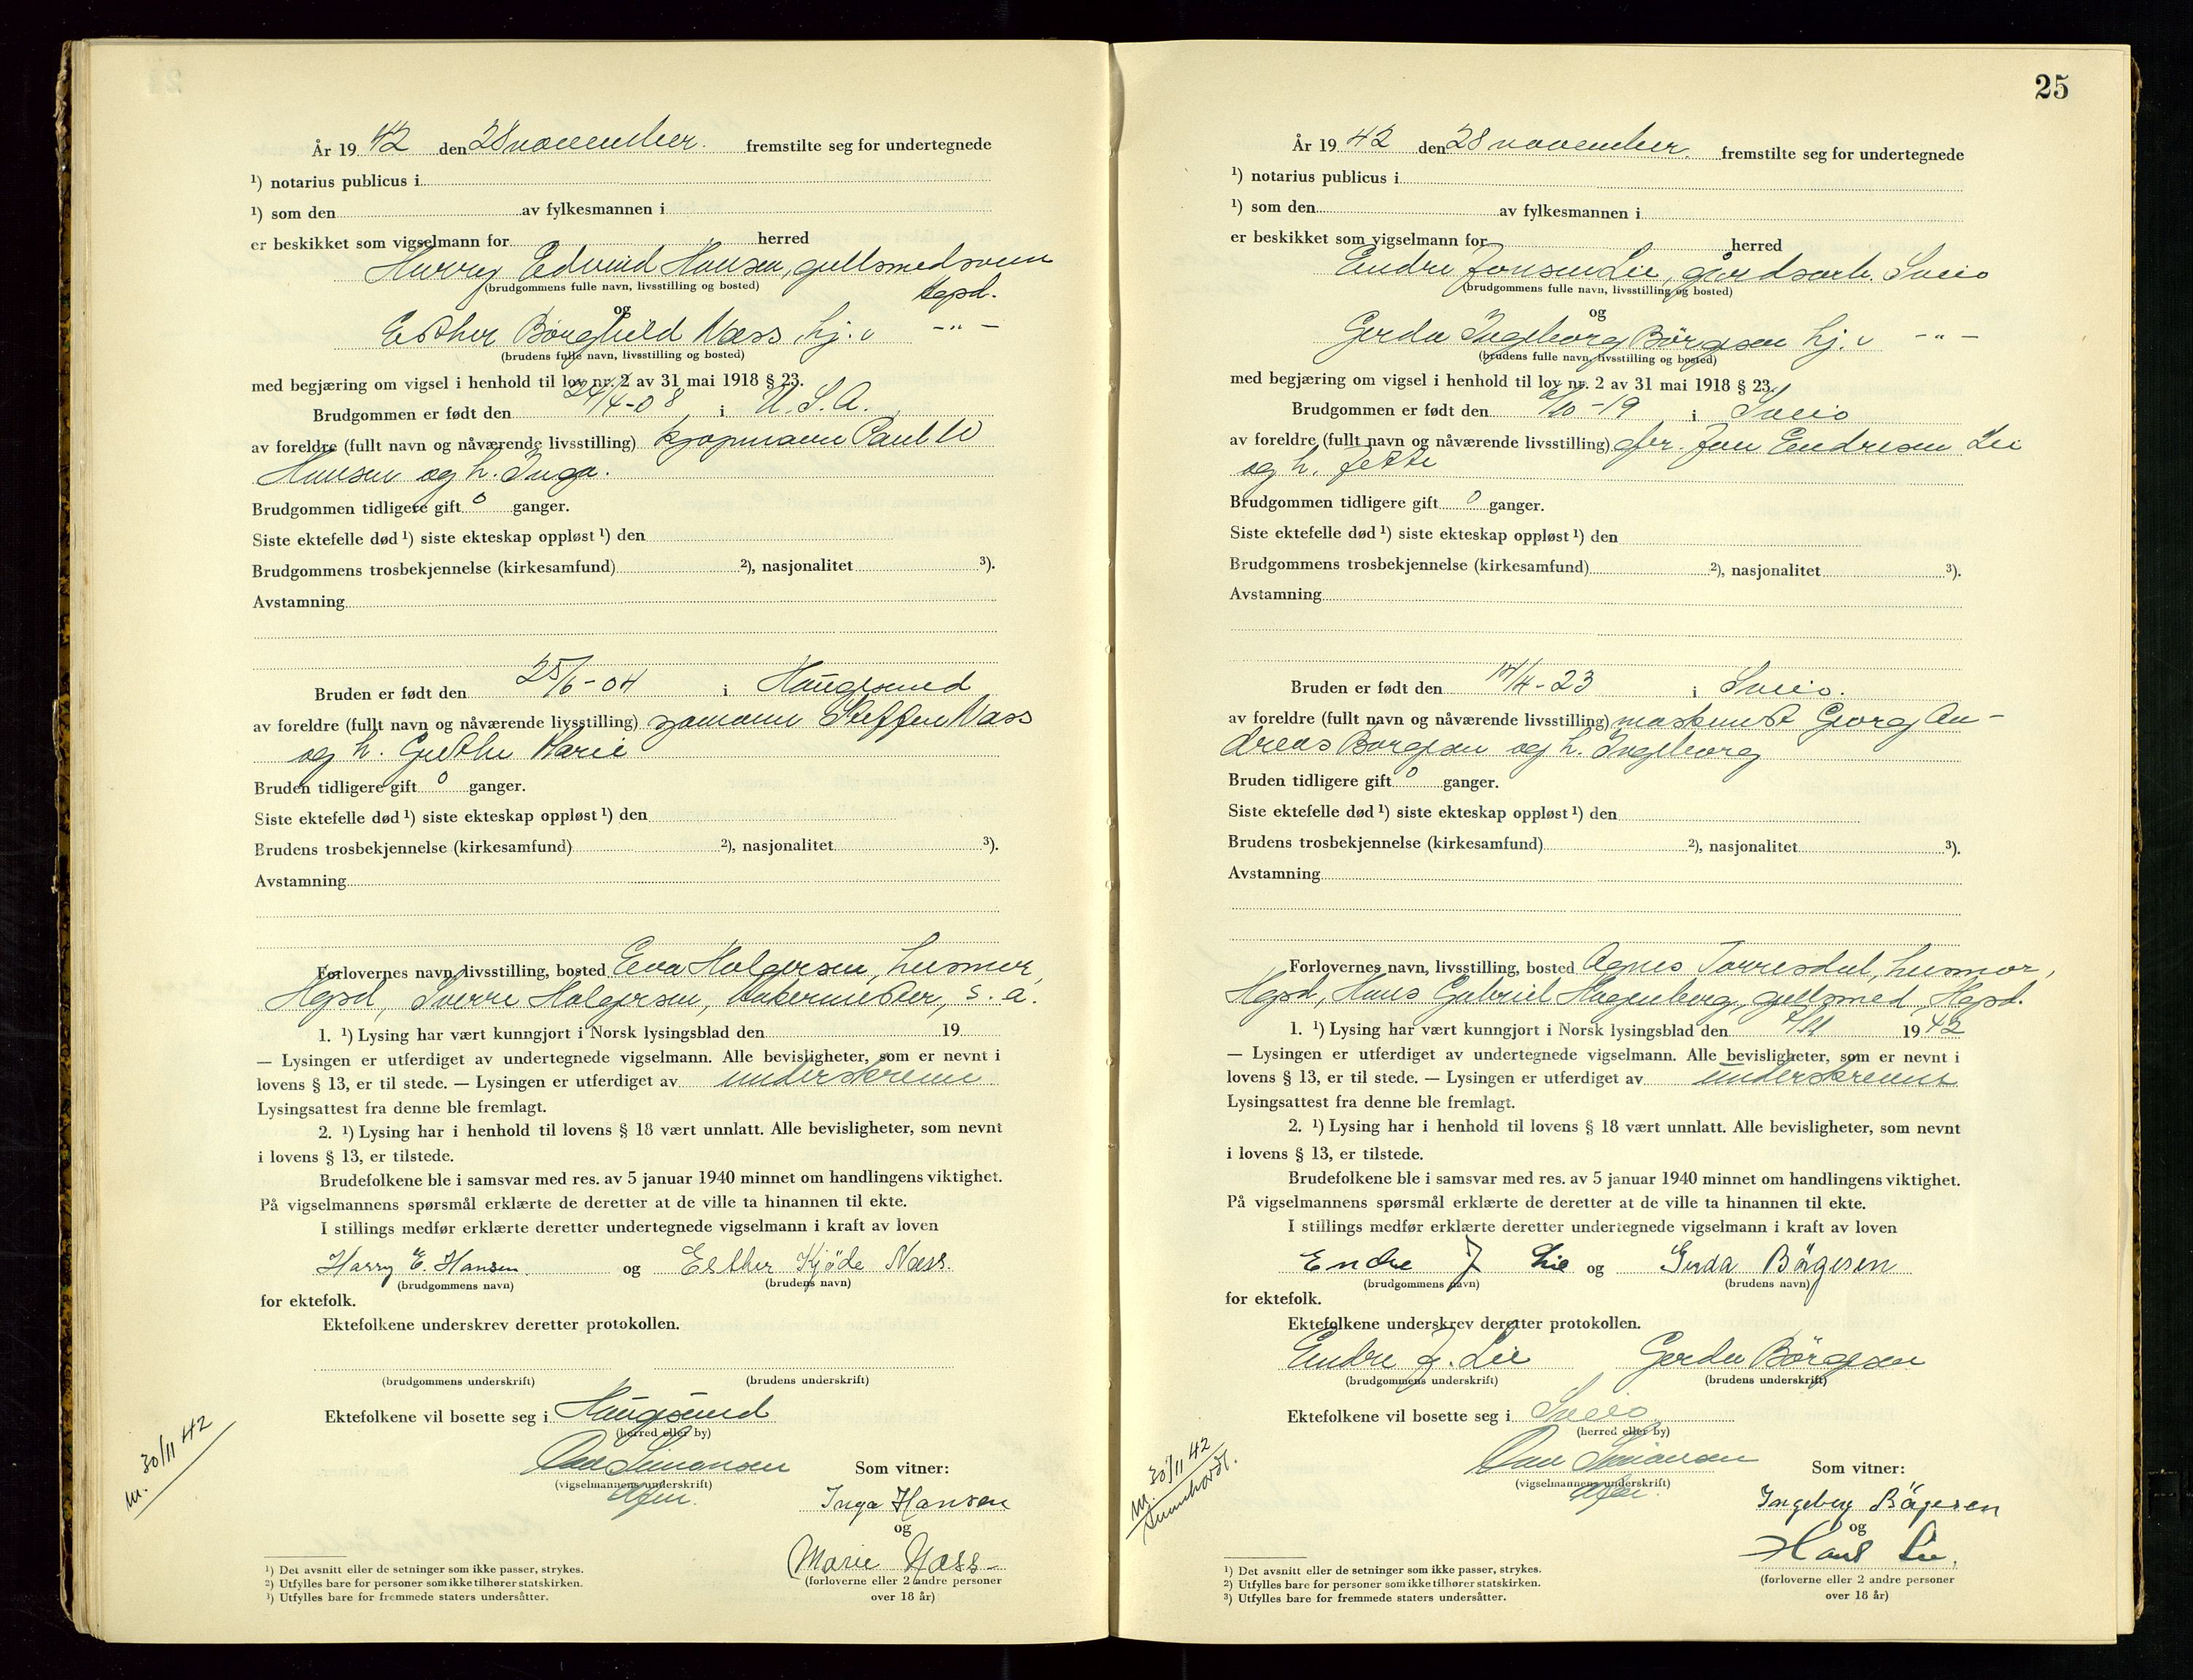 År 19 42 den 28 november. fremstilte seg for undertegnede
¹) notarius publicus i
¹) som den av fylkesmannen i
er beskikket som vigselmann for herred
Harry Edvind Hansen, gullsmedsvenn
(brudgommens fulle navn, livsstilling og bosted)
Hgsd.
og
Esther Børghild Næss, hj. v -"-
(brudens fulle navn, livsstilling og bosted)
med begjæring om vigsel i henhold til lov nr. 2 av 31 mai 1918 § 23.
Brudgommen er født den 24/4-08, i U.S.A.
av foreldre (fullt navn og nåværende livsstilling) kjøpmann Paul W
Hansen og h. Inga.
Brudgommen tidligere gift 0 ganger.
Siste ektefelle død ¹) siste ekteskap oppløst ¹) den
Brudgommens trosbekjennelse (kirkesamfund) ²), nasjonalitet ³).
Avstamning
Bruden er født den 25/6-04 i Haugesund
av foreldre (fullt navn og nåværende livsstilling) sjømann Steffen Næss
og h. Marie
Bruden tidligere gift 0 ganger.
Siste ektefelle død ¹) siste ekteskap oppløst ¹) den
Brudens trosbekjennelse (kirkesamfund) ²), nasjonalitet ³).
Avstamning
Forlovernes navn, livsstilling, bosted Eva Holgersen, husmor,
Hgsd, Sverre Holgersen, bakermester, s. a.
1. ¹) Lysing har vært kunngjort i Norsk lysingsblad den 19
— Lysingen er utferdiget av undertegnede vigselmann. Alle bevisligheter, som er nevnt i
lovens § 13, er til stede. — Lysingen er utferdiget av underskrevne
Lysingsattest fra denne ble fremlagt.
2. ¹) Lysing har i henhold til lovens § 18 vært unnlatt. Alle bevisligheter, som nevnt
i lovens § 13, er tilstede.
Brudefolkene ble i samsvar med res. av 5 januar 1940 minnet om handlingens viktighet.
På vigselmannens spørsmål erklærte de deretter at de ville ta hinannen til ekte.
I stillings medfør erklærte deretter undertegnede vigselmann i kraft av loven
Harry E. Hansen og Esther Kjöde Næss
(brudgommens navn) (brudens navn)
for ektefolk.
Ektefolkene underskrev deretter protokollen.
(brudgommens underskrift) (brudens underskrift)
Ektefolkene vil bosette seg i Haugesund
(herred eller by)
Simonsen
(vigselmannens underskrift)
Som vitner:
Inga Hansen
og
Marie Næss
(forloverne eller 2 andre personer
over 18 år)
m. 30/11 42
¹) Det avsnitt eller de setninger som ikke passer, strykes.
²) Utfylles bare for personer som ikke tilhører statskirken.
³) Utfylles bare for fremmede staters undersåtter.
25
År 19 42 den 28 november. fremstilte seg for undertegnede
¹) notarius publicus i
¹) som den av fylkesmannen i
er beskikket som vigselmann for herred
Endre Jonsen Lie, gårdsarb. Sveio
(brudgommens fulle navn, livsstilling og bosted)
og
Gerda Ingeborg Börgesen hj. v -"-
(brudens fulle navn, livsstilling og bosted)
med begjæring om vigsel i henhold til lov nr. 2 av 31 mai 1918 § 23.
Brudgommen er født den /10-19 i Sveio
av foreldre (fullt navn og nåværende livsstilling) gbr. Jon Endresen Lie
og h.
Brudgommen tidligere gift 0 ganger.
Siste ektefelle død ¹) siste ekteskap oppløst ¹) den
Brudgommens trosbekjennelse (kirkesamfund) ²), nasjonalitet ³).
Avstamning
Bruden er født den 17/4-23 i Sveio.
av foreldre (fullt navn og nåværende livsstilling) maskinist Georg An-
dreas Børgesen og h. Ingeborg
Bruden tidligere gift 0 ganger.
Siste ektefelle død ¹) siste ekteskap oppløst ¹) den
Brudens trosbekjennelse (kirkesamfund) ²), nasjonalitet ³).
Avstamning
Forlovernes navn, livsstilling, bosted Agnes Torresdal, husmor,
Hgsd, Hans Gabriel Hagenberg, gullsmed, Hgsd.
1. ¹) Lysing har vært kunngjort i Norsk lysingsblad den 7/11 19 42
— Lysingen er utferdiget av undertegnede vigselmann. Alle bevisligheter, som er nevnt i
lovens § 13, er til stede. — Lysingen er utferdiget av underskrevne
Lysingsattest fra denne ble fremlagt.
2. ¹) Lysing har i henhold til lovens § 18 vært unnlatt. Alle bevisligheter, som nevnt
i lovens § 13, er tilstede.
Brudefolkene ble i samsvar med res. av 5 januar 1940 minnet om handlingens viktighet.
På vigselmannens spørsmål erklærte de deretter at de ville ta hinannen til ekte.
I stillings medfør erklærte deretter undertegnede vigselmann i kraft av loven
Endre J Lie og Gerda Börgesen
(brudgommens navn) (brudens navn)
for ektefolk.
Ektefolkene underskrev deretter protokollen.
Endre J. Lie Gerda Börgesen
(brudgommens underskrift) (brudens underskrift)
Ektefolkene vil bosette seg i Sveio
(herred eller by)
Simonsen
(vigselmannens underskrift)
Som vitner:
Ingeborg Börgesen
og
Hans Lie.
(forloverne eller 2 andre personer
over 18 år)
m. 30/11 42
Sunnhordl.
¹) Det avsnitt eller de setninger som ikke passer, strykes.
²) Utfylles bare for personer som ikke tilhører statskirken.
³) Utfylles bare for fremmede staters undersåtter.